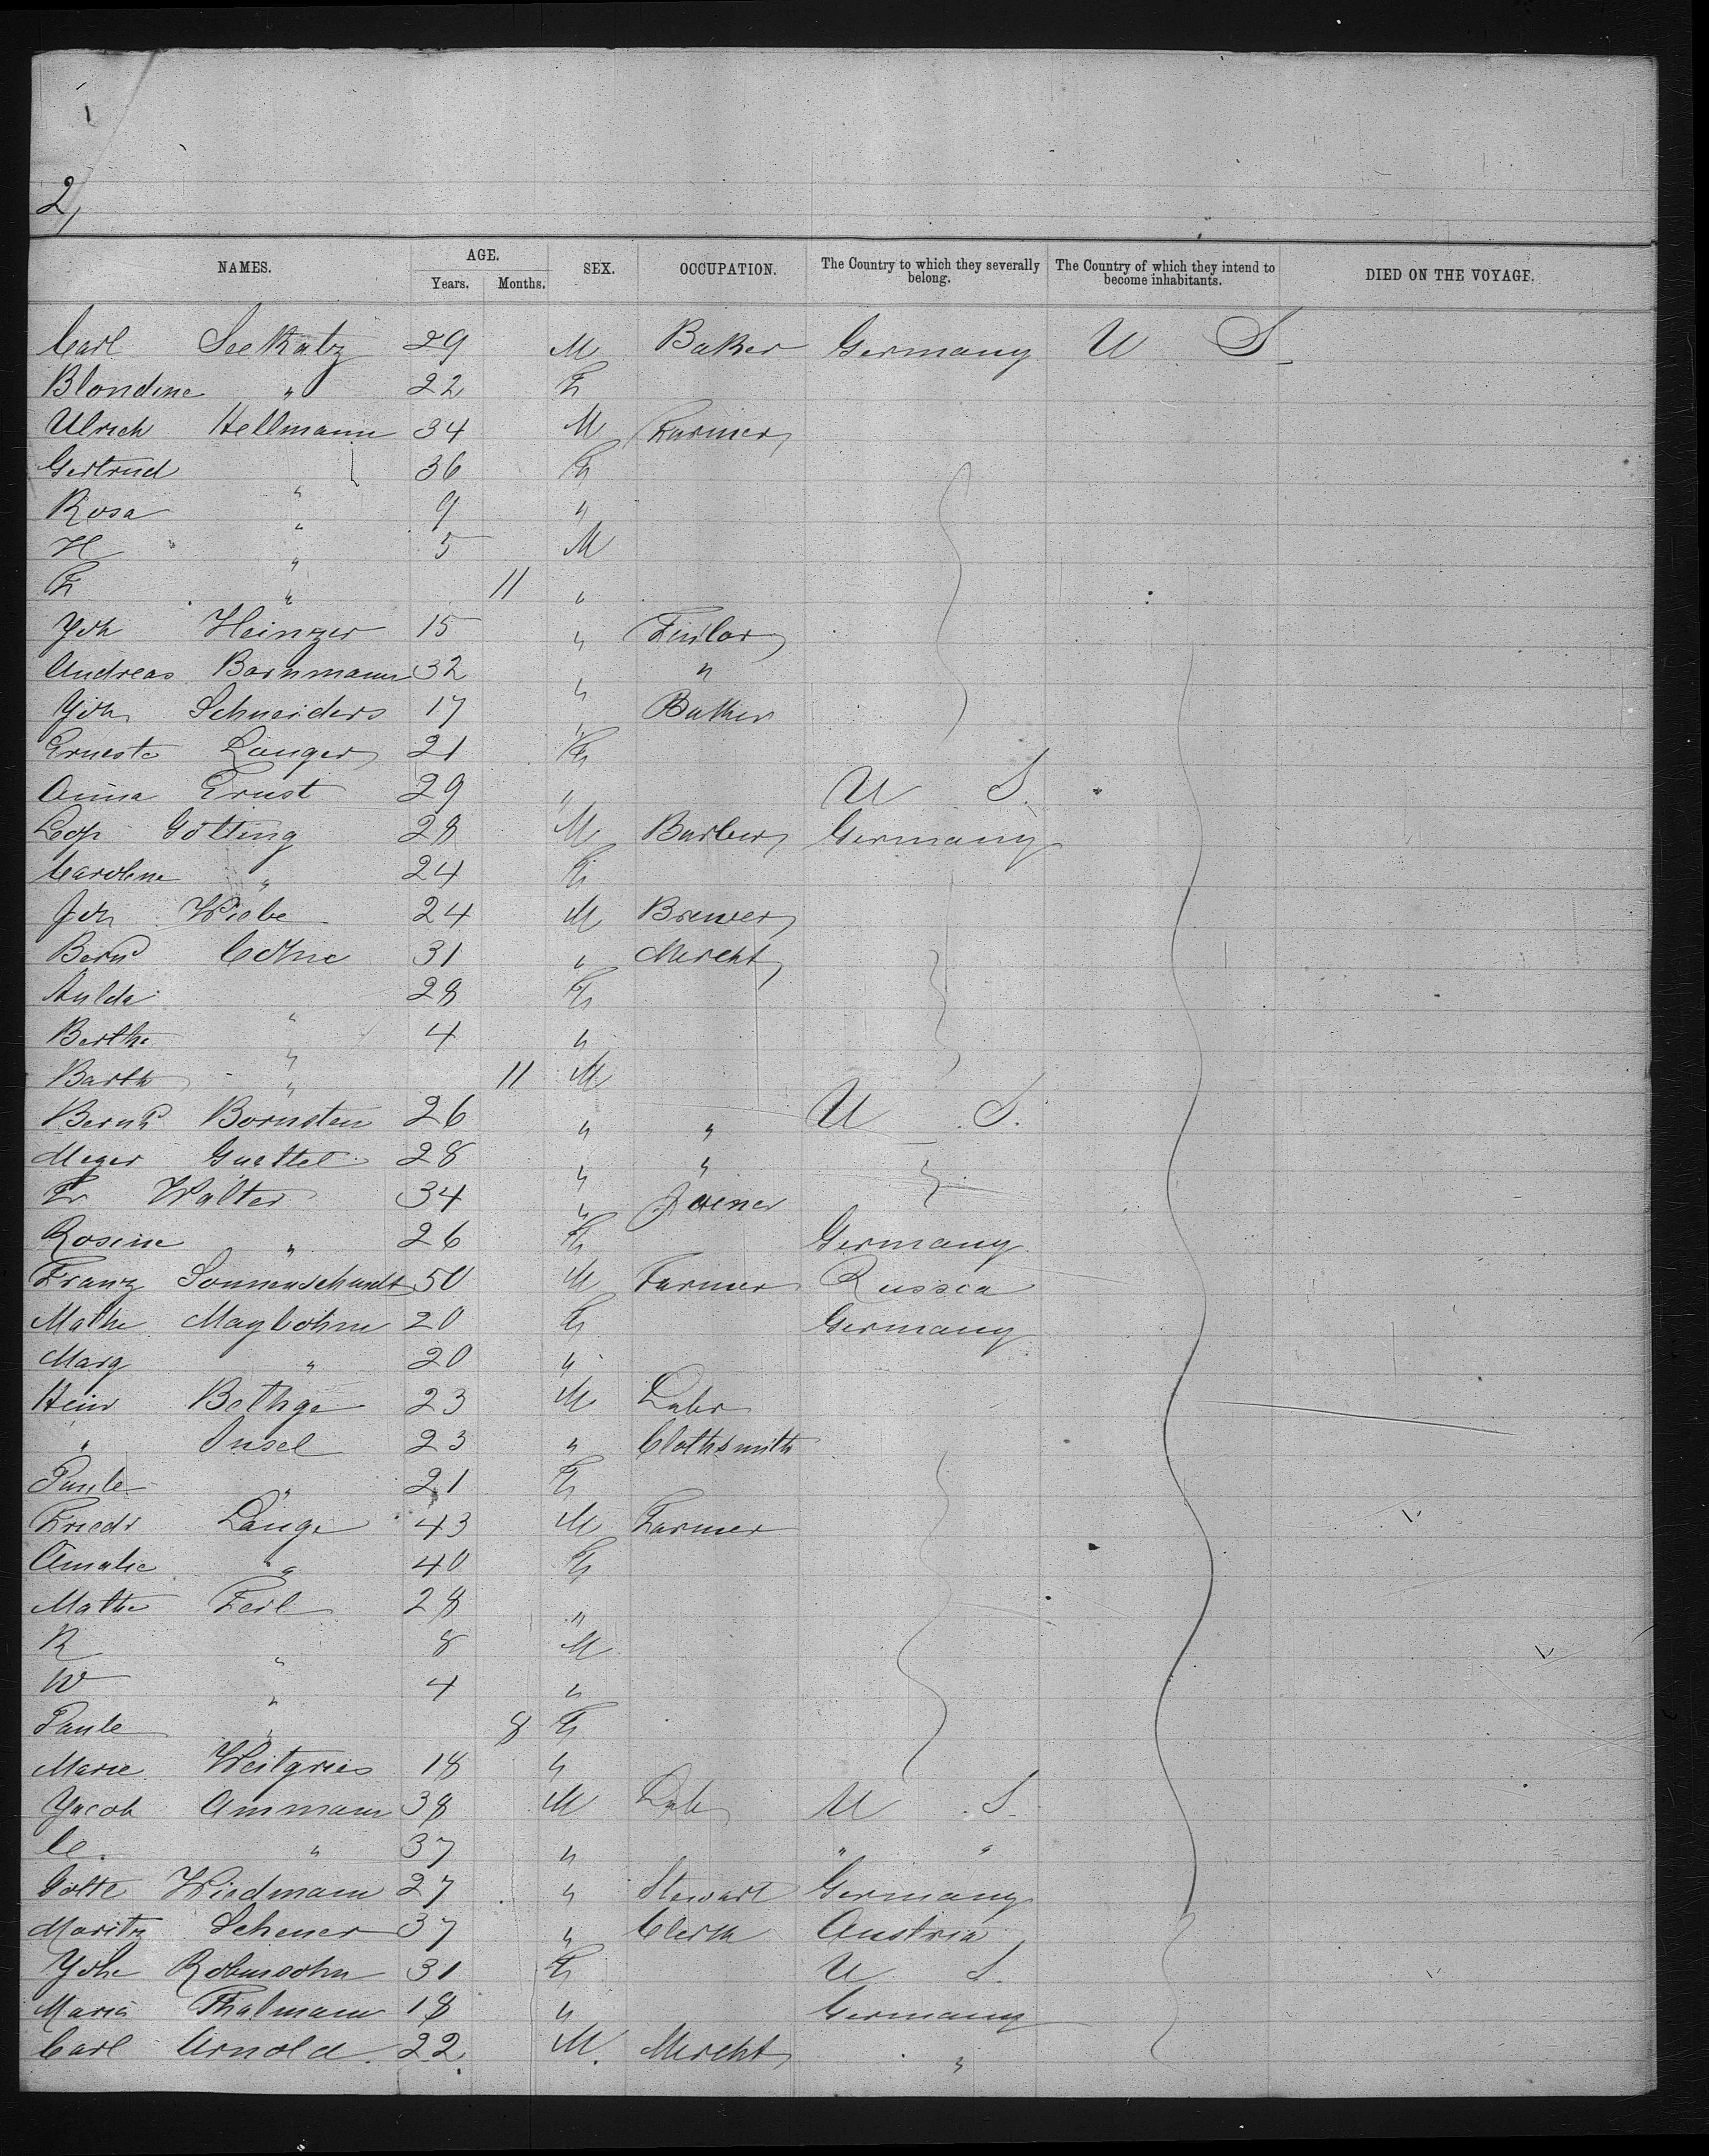 2,
NAMES. AGE. Years. Months. SEX. OCCUPATION. The Country to which they severally belong. The Country of which they intend to become inhabitants. DIED ON THE VOYAGE.
Carl Seekatz 29 M Baker Germany U S
Blondine " 22 F
Ulrich Hellmann 34 M Farmer
Gertrud " 36 F
Rosa " 9 "
H " 5 M
F " 11 "
Joh Heinzer 15 " Tailor
Andreas Barnmann 32 " "
Joh Schneiders 17 " Baker
Erneste Langer 21 F
Anna Ernst 29 " U S.
Leop Gölting 28 M Barber Germany
Caroline " 24 F
Joh Wiebe 24 M Brewer
Bernd Cohne 31 " Mercht
Hulda " 28 F
Berthe " 4 "
Barth " 11 M
Bernhd Bornstein 26 " " U S.
Meyer Guettel 28 " "
Fr Walter 34 " Joiner
Rosine " 26 F Germany
Franz Sonnenschmidt 50 M Farmer Russia
Mathe Maybohm 20 F Germany
Marg " 20 "
Heinr Bethge 23 M Labr
" Insel 23 " Clothsmith
Paule " 21 F
Friedr Lange 43 M Farmer
Amalie " 40 F
Mathe Feil 28 "
R " 8 M
W " 4 "
Paule " 8 F
Marie Weitgries 18 "
Jacob Ammann 38 M Lab U S.
C. " 37 " " "
Wiedmann 27 " Stewart Germany
Moritz Scheuer 37 " Clerk Austria
Johe Robinsohn 31 F U S.
Maria Thalmann 18 " Germany
Carl Arnold. 22. M. Mercht "